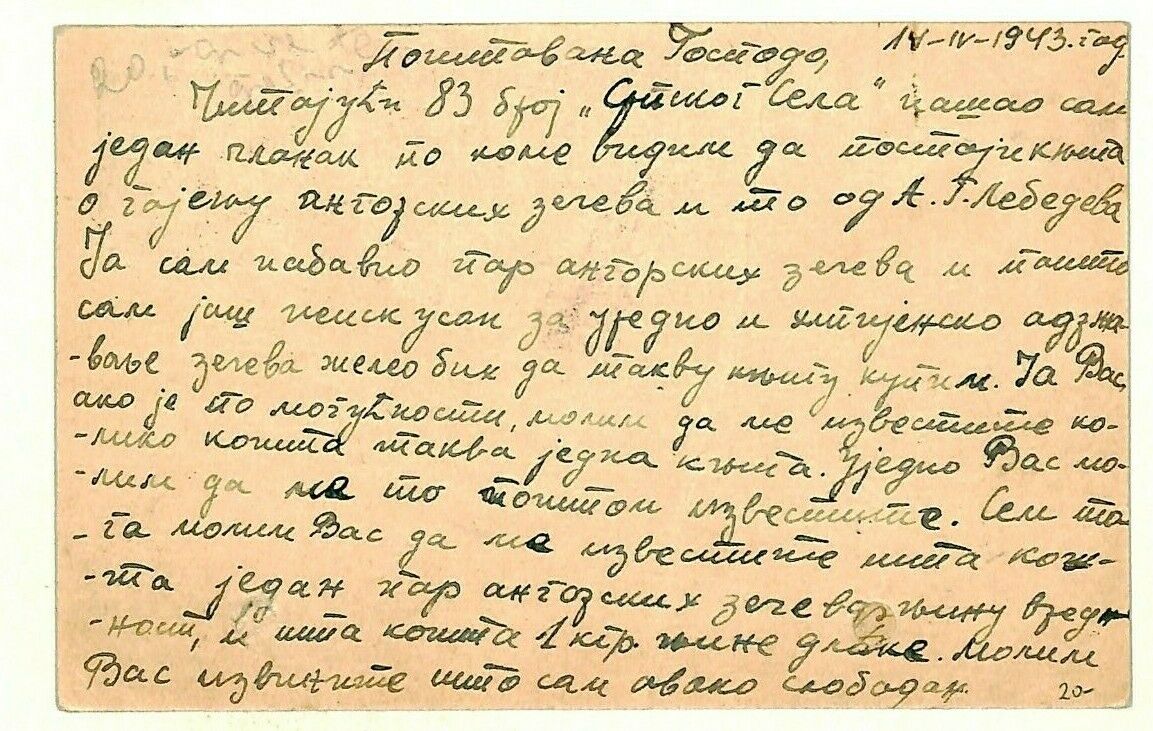 14-IV-1943. год.
Поштована Господо,
Читајући 83 број „Српског Села" нашао сам
један чланак по коме видим да постоји књига
о гајењу ангорских зечева и то од А. Г. Лебедева
Ја сам набавио пар ангорских зечева и пошто
сам још неискусан за уредно и хигијенско одржа-
-вање зечева желео бих да такву књигу купим. Ја Вас,
ако је по могућности, молим да ме известите ко-
-лико кошта таква једна књига. Уједно Вас мо-
-лим да ме то поштом известите. Сем то-
-га молим Вас да ме известите шта кош-
-та један пар ангорских зечева, њину вредн-
-ност, и шта кошта 1 кгр. њине длаке. Молим
Вас извините што сам овако слободан.
20-